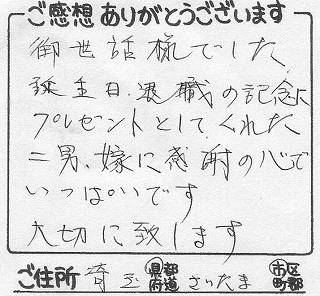 ご感想ありがとうございます
御世話様でした
誕生日、退職の記念に
プレゼントとしてくれた
二男、嫁に感謝の心で
いっぱいです
大切に致します
ご住所 埼玉 都道府県 さいたま 市区町郡